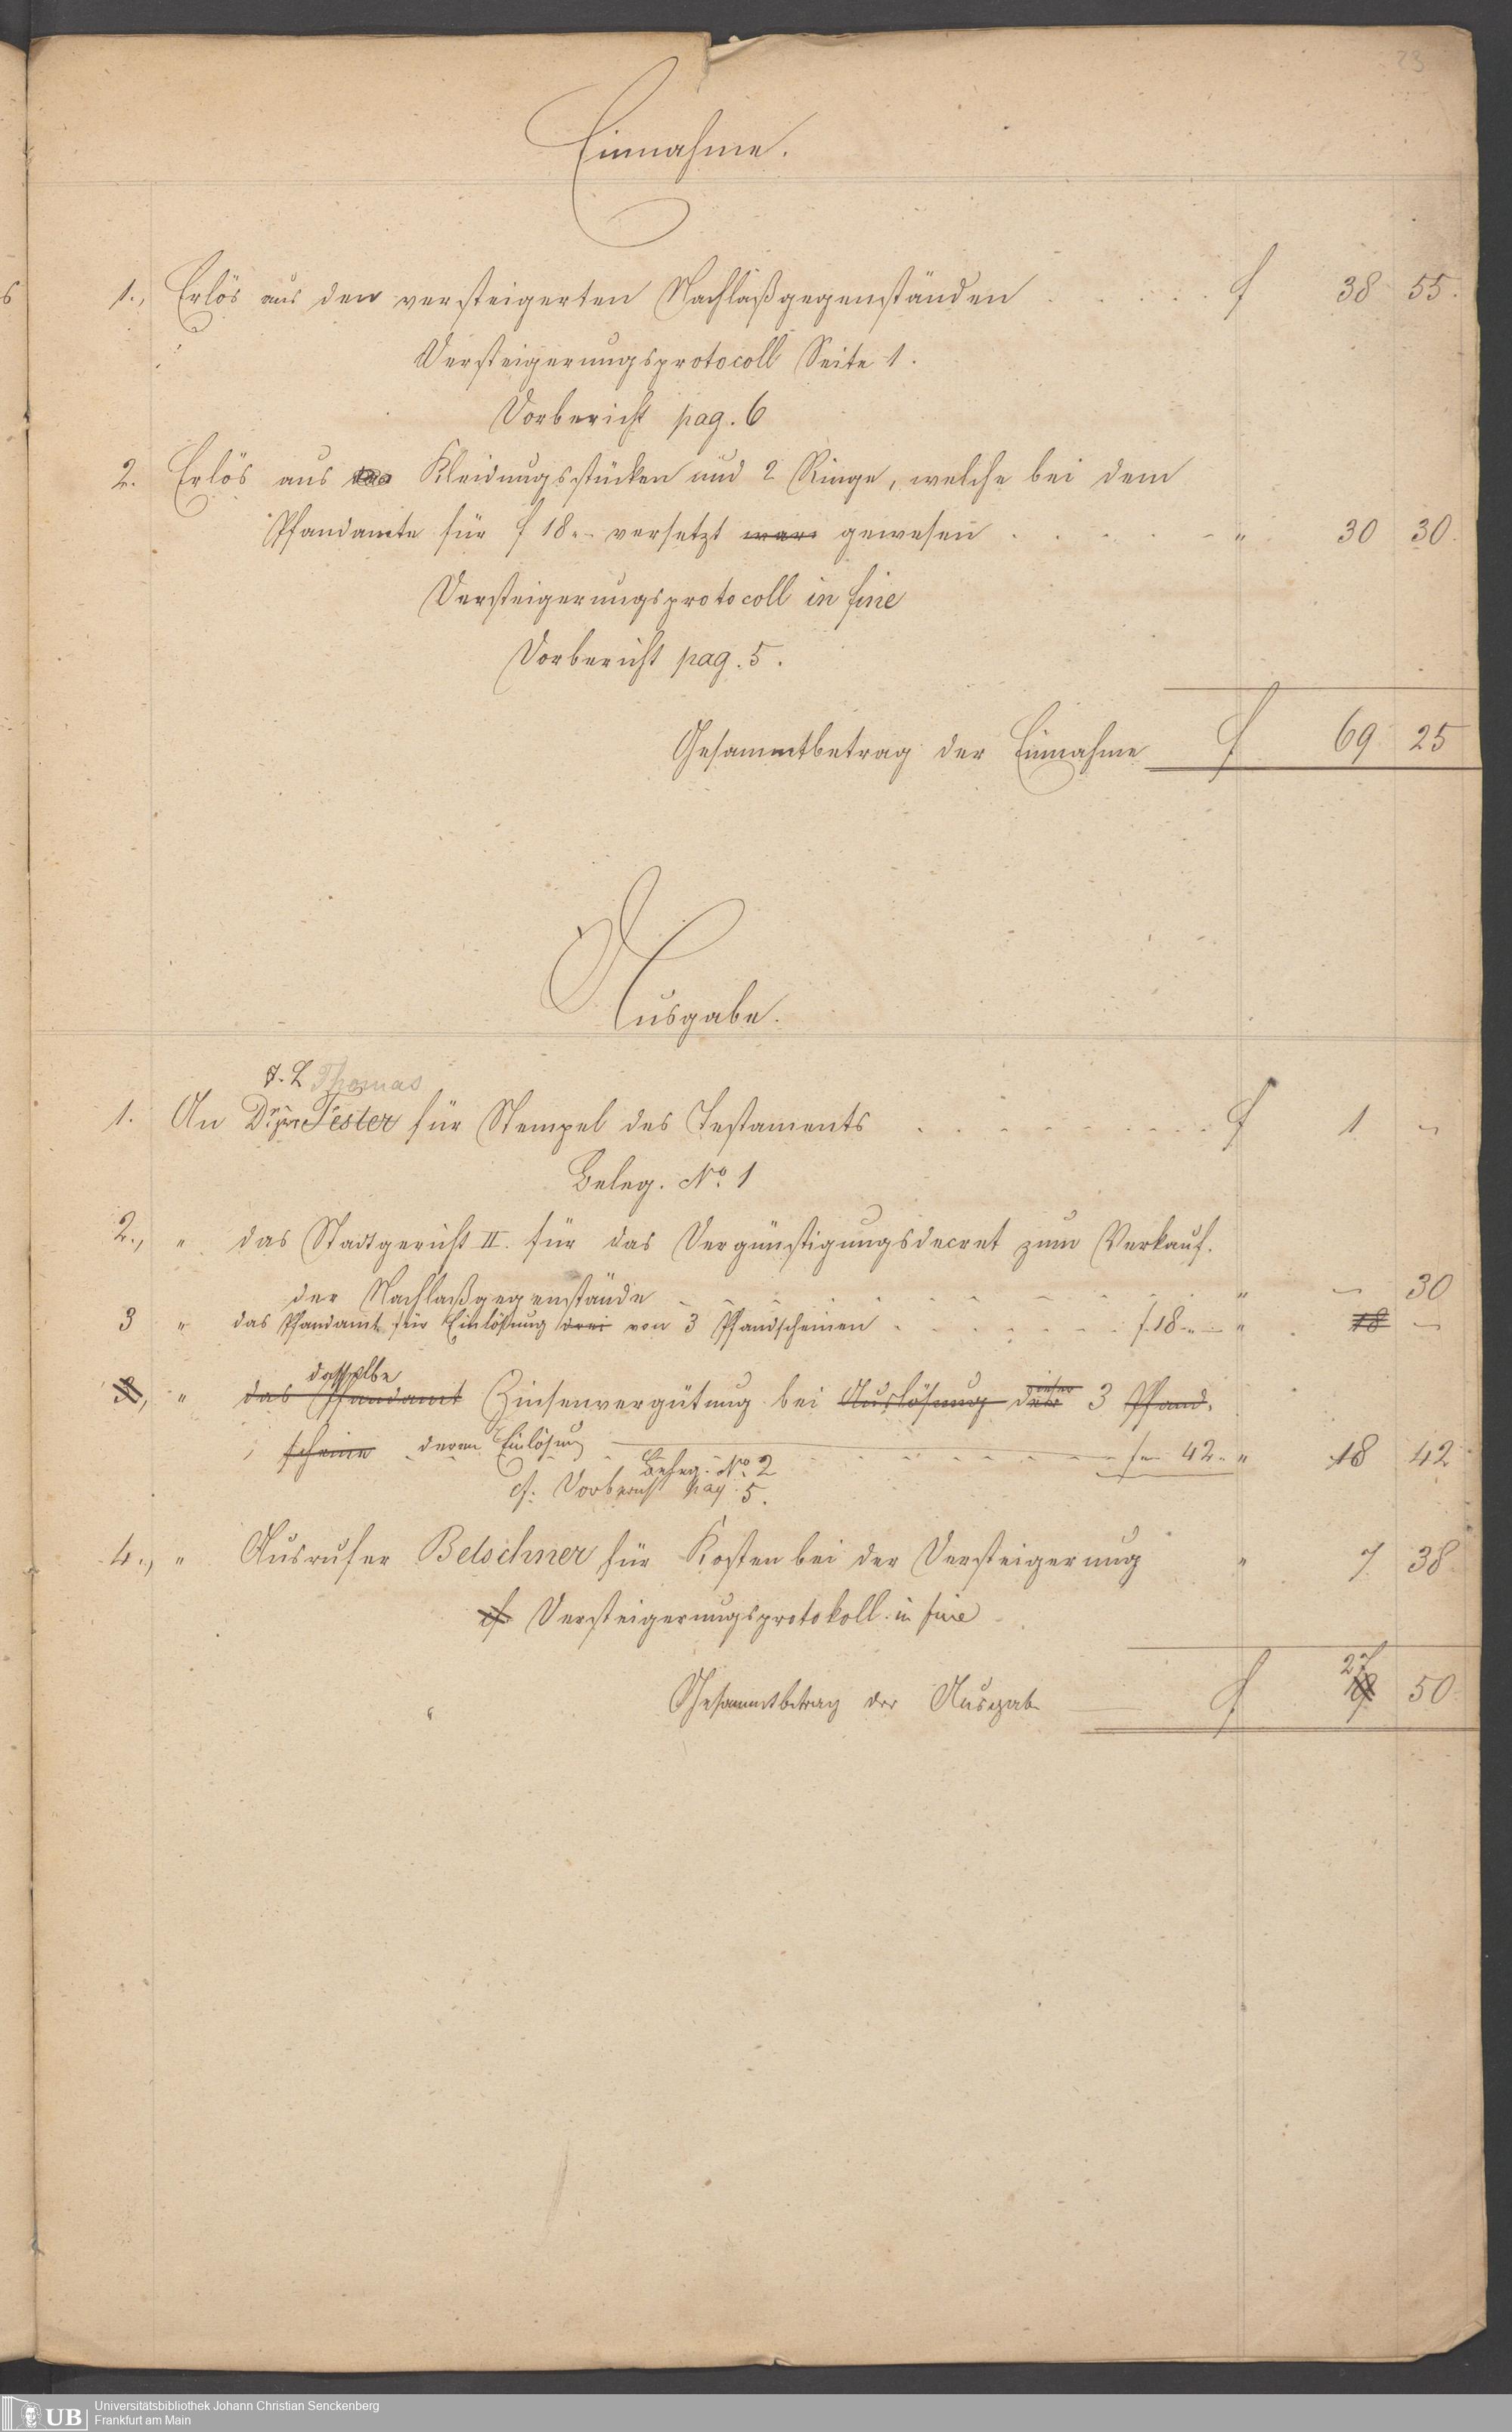 23
Einnahme.
1., Erlös aus den versteigerten Nachlaßgegenständen . . . . . f 38 55.
Versteigerungsprotocoll Seite 1.
Vorbericht pag. 6
2. Erlös aus Kleidungsstücken und 2 Ringe, welche bei dem
Pfandamte für f 18.- versetzt war gewesen . . . . . " 30 30.
Versteigerungsprotocoll in fine
Vorbericht pag. 5.
Gesammtbetrag der Einnahme f 69 25
Ausgabe.
Thomas
1. An Dr. jur. Tester für Stempel des Testaments . . . . . . . . . . f 1 -
Beleg. No. 1
2., " das Stadtgericht II. für das Vergünstigungsdecret zum Verkauf.
der Nachlaßgegenstände . . . . . . . . . . " - 30
3 " das Pfandamt für Einlösung drei von 3 Pfandscheinen . . . . . . . f. 18.- " 18 -
dasselbe
3, " das Pfandamt Zinsenvergütung bei Auslösung der 3 Pfand-
scheine deren Einlösung f - 42. " 18 42
Beleg. No. 2
cf. Vorbericht pag. 5.
4., " Ausrufer Belschner für Kosten bei der Versteigerung " 7 38
cf Versteigerungsprotokoll in fine
27
Gesammtbetrag der Ausgabe f 50
UB
Universitätsbibliothek Johann Christian Senckenberg
Frankfurt am Main